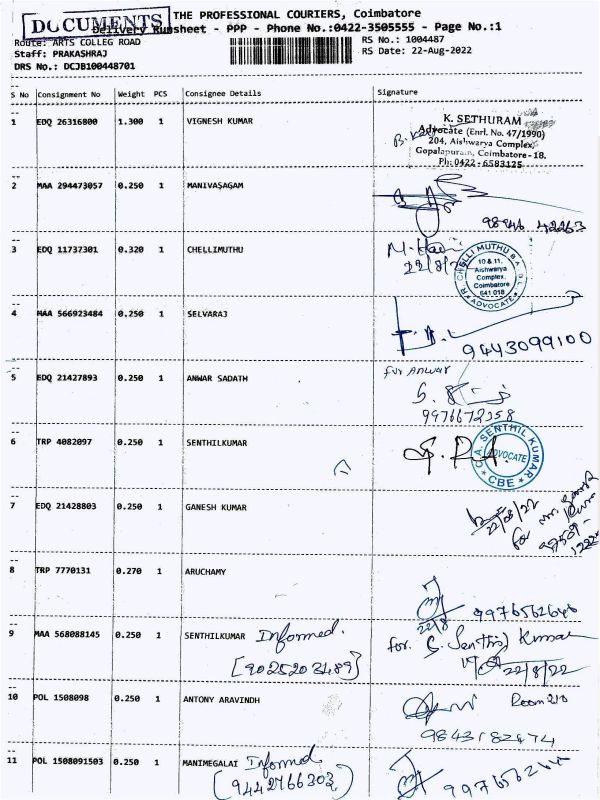 DOCUMENTS
THE PROFESSIONAL COURIERS, Coimbatore
Delivery Runsheet - PPP - Phone No.:0422-3505555 - Page No.:1
Route: ARTS COLLEG ROAD
RS No.: 1004487
Staff: PRAKASHRAJ
RS Date: 22-Aug-2022
DRS No.: DCJB100448701
S No Consignment No Weight PCS Consignee Details Signature
1 EDQ 26316800 1.300 1 VIGNESH KUMAR
K. SETHURAM
Advocate (Enrl. No. 47/1990)
204, Aishwarya Complex,
Gopalapuram, Coimbatore-18.
Ph: 0422-6583125
2 MAA 294473057 0.250 1 MANIVASAGAM
98946 42263
3 EDQ 11737301 0.320 1 CHELLIMUTHU
22/8/2
R. CHELLI MUTHU B.A., B.L.
10 & 11,
Aishwarya
Complex,
Coimbatore
641 018
ADVOCATE
4 MAA 566923484 0.250 1 SELVARAJ
9443099100
5 EDQ 21427893 0.250 1 ANWAR SADATH
for Anwar
9976672358
6 TRP 4082097 0.250 1 SENTHILKUMAR
SENTHIL KUMAR
ADVOCATE
CBE
7 EDQ 21428803 0.250 1 GANESH KUMAR
22/08/22
for Mr. Ganesh
Kumar
97509-
8 TRP 7770131 0.270 1 ARUCHAMY
22/8
9976562646
9 MAA 568088145 0.250 1 SENTHILKUMAR Informed.
[9025203489]
for. S. Senthil Kumar
22/8/22
10 POL 1508098 0.250 1 ANTONY ARAVINDH
Room 210
9843182474
11 POL 1508091503 0.250 1 MANIMEGALAI Informed
(9442766303)